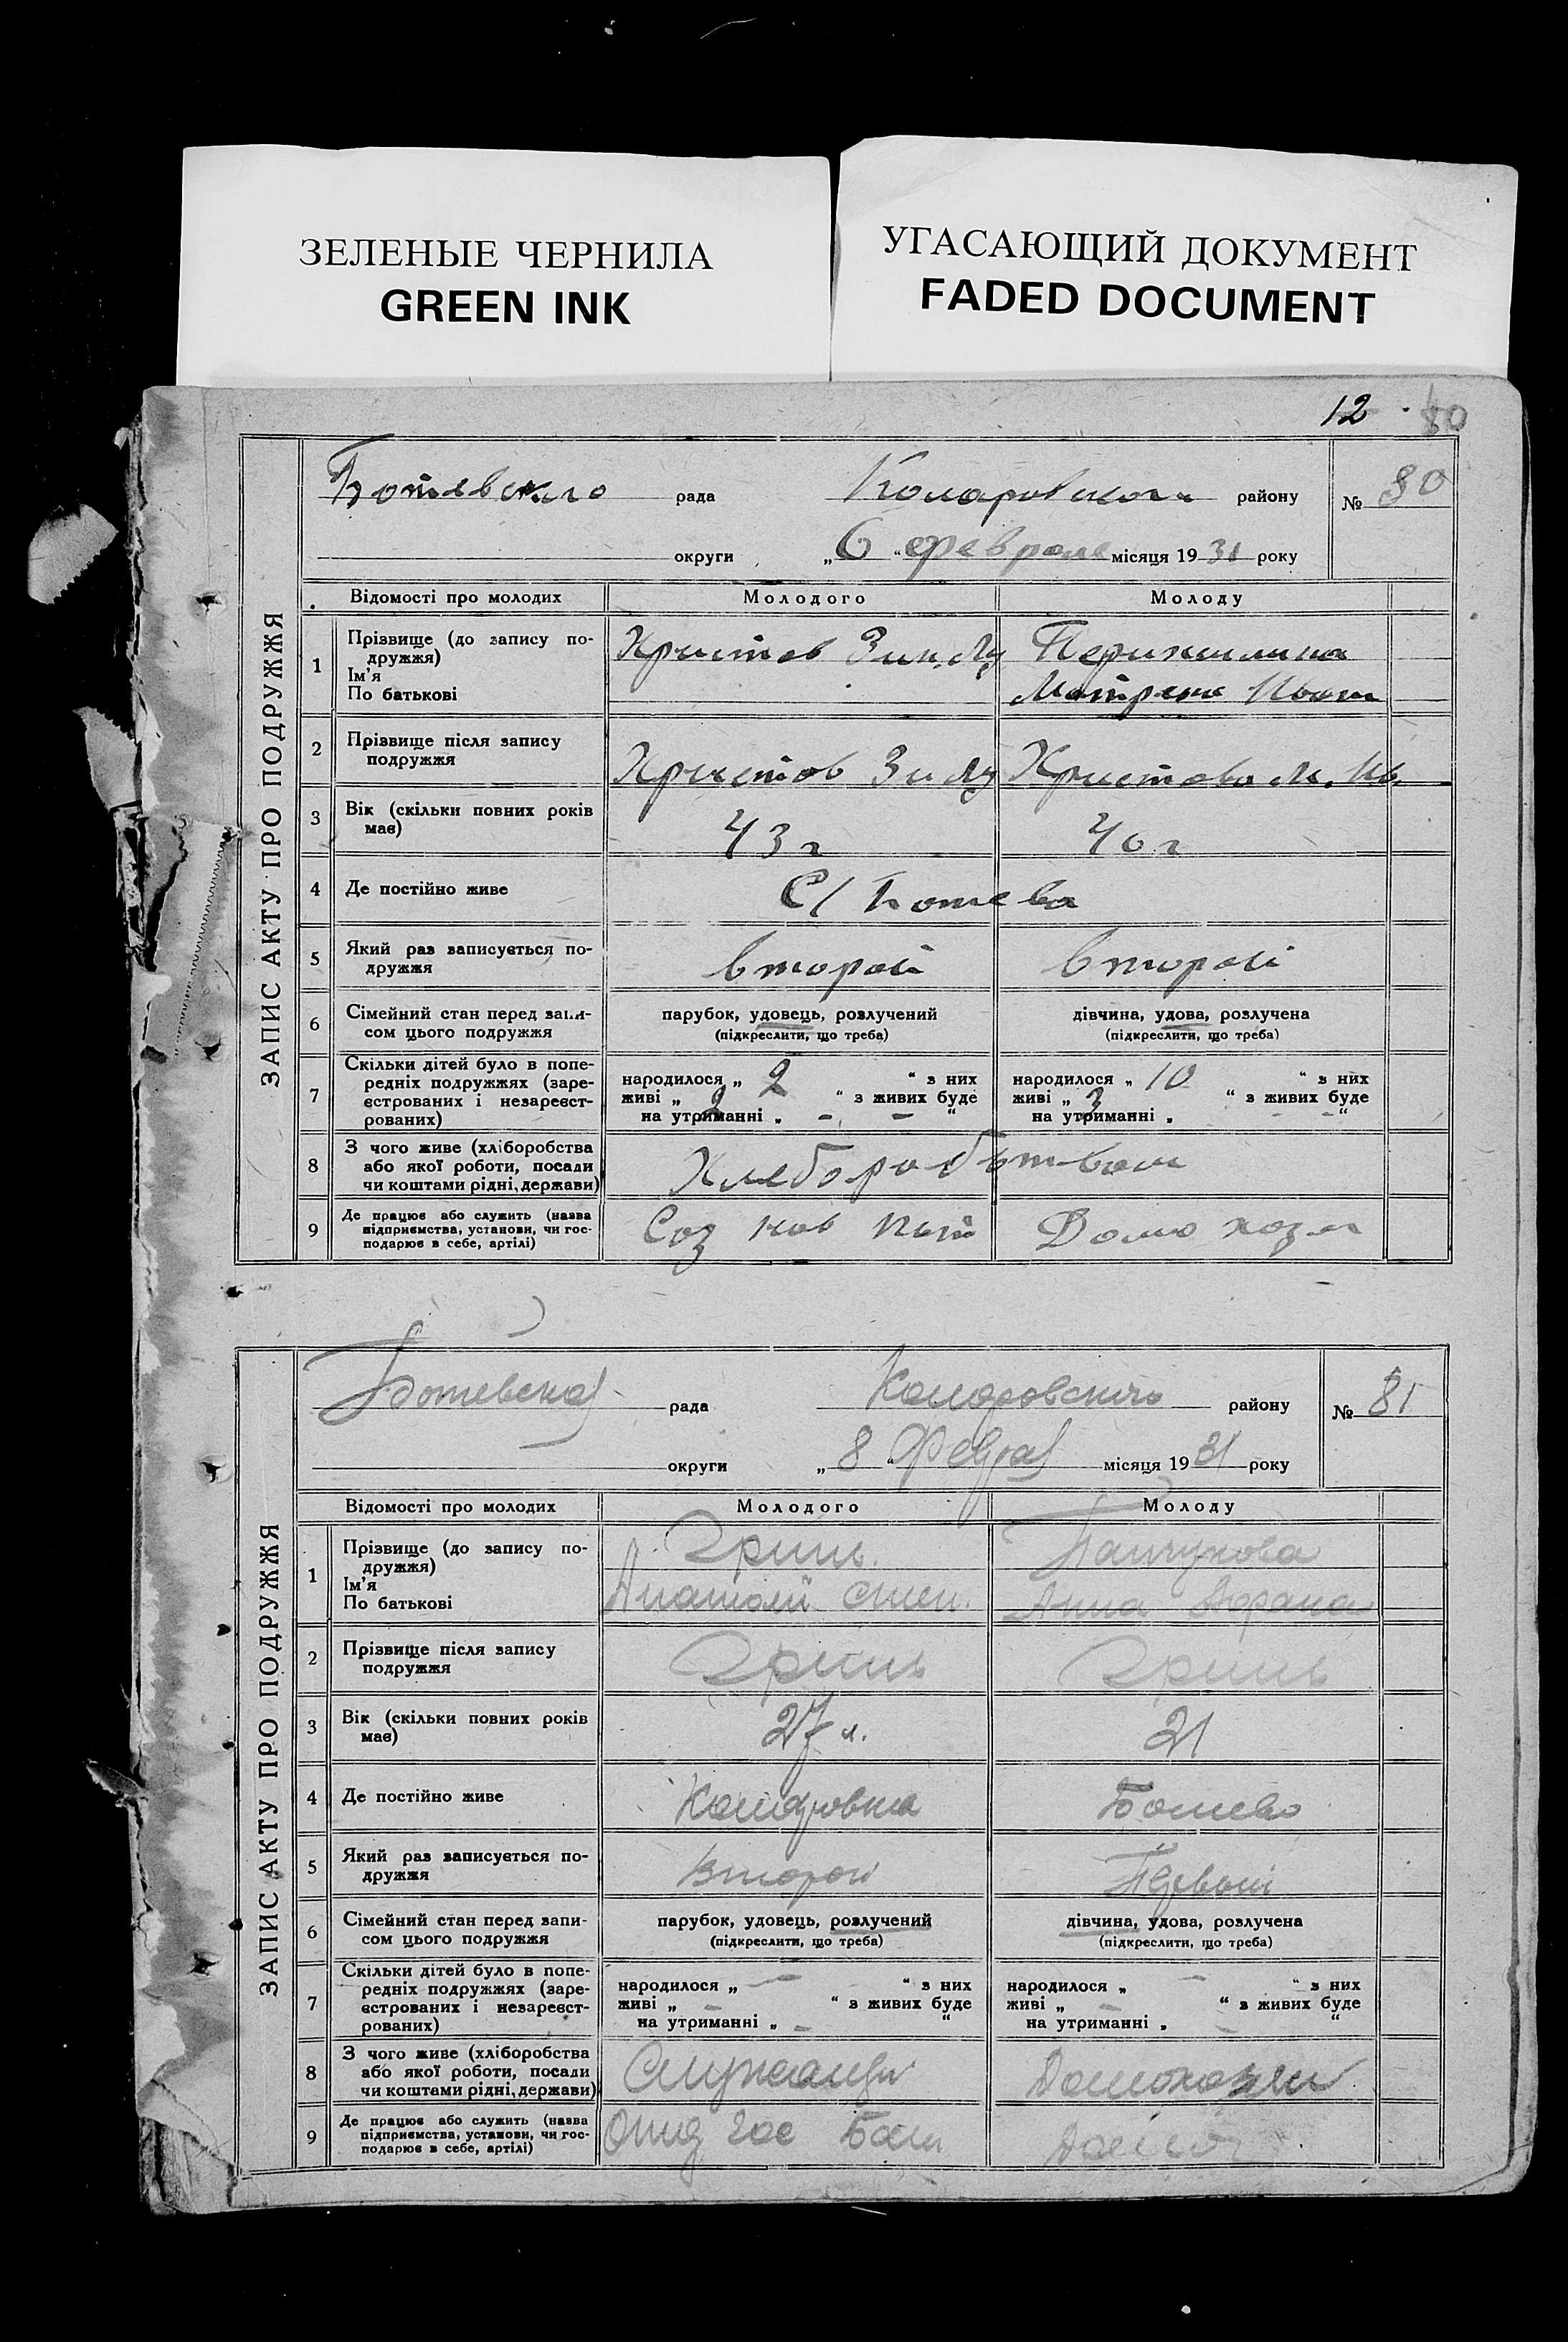 ЗЕЛЕНЫЕ ЧЕРНИЛА
GREEN INK
УГАСАЮЩИЙ ДОКУМЕНТ
FADED DOCUMENT
12 80
ЗАПИС АКТУ ПРО ПОДРУЖЖЯ
Ботевского рада Коларовского району № 80
округи „6“ феврале місяця 1931 року
Відомості про молодих Молодого Молоду
1 Прізвище (до запису по-
дружжя)
Ім'я
По батькові
Христов Зин.
Матрена
2 Прізвище після запису
подружжя
Христов Христова М. Ив.
3 Вік (скільки повних років
має)
43 г 40 г
4 Де постійно живе С/ Ботева
5 Який раз записується по-
дружжя
второй второй
6 Сімейний стан перед запи-
сом цього подружжя
парубок, удовець, розлучений
(підкреслити, що треба)
дівчина, удова, розлучена
(підкреслити, що треба)
7 Скільки дітей було в попе-
редніх подружжях (заре-
єстрованих і незареєст-
рованих)
народилося „ 2 “ з них
живі „ 2 “ з живих буде
на утриманні „ - - “
народилося „ 10 “ з них
живі „ 3 “ з живих буде
на утриманні „ - - “
8 З чого живе (хліборобства
або якої роботи, посади
чи коштами рідні, держави)
9 Де працює або служить (назва
підприємства, установи, чи гос-
подарює в себе, артілі)
Соз нов Домохоз
ЗАПИС АКТУ ПРО ПОДРУЖЖЯ
Ботевска рада Коларовского району № 81
округи „8“ Февра місяця 1931 року
Відомості про молодих Молодого Молоду
1 Прізвище (до запису по-
дружжя)
Ім'я
По батькові
Гринь.
Анатолий Степ.
Анна
2 Прізвище після запису
подружжя
Гринь Гринь
3 Вік (скільки повних років
має)
27 л. 21
4 Де постійно живе Коларовка Ботево
5 Який раз записується по-
дружжя
Второй Первый
6 Сімейний стан перед запи-
сом цього подружжя
парубок, удовець, розлучений
(підкреслити, що треба)
дівчина, удова, розлучена
(підкреслити, що треба)
7 Скільки дітей було в попе-
редніх подружжях (заре-
єстрованих і незареєст-
рованих)
народилося „ - “ з них
живі „ - “ з живих буде
на утриманні „ - “
народилося „ - “ з них
живі „ - “ з живих буде
на утриманні „ - “
8 З чого живе (хліборобства
або якої роботи, посади
чи коштами рідні, держави)
Служащий Домохозяи
9 Де працює або служить (назва
підприємства, установи, чи гос-
подарює в себе, артілі)